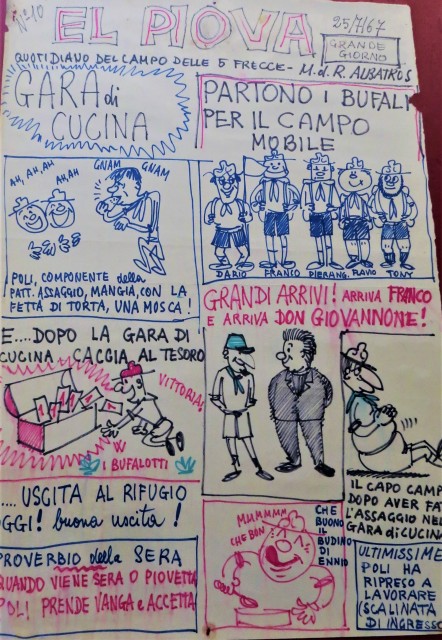 N° 10
EL PIOVA
25/7/67
GRANDE
GIORNO
QUOTIDIANO DEL CAMPO DELLE 5 FRECCE - M. d. R. ALBATROS
GARA di
CUCINA
PARTONO I BUFALI
PER IL CAMPO
MOBILE
AH, AH, AH
AH, AH
GNAM
GNAM
POLI, COMPONENTE della
PATT. ASSAGGIO, MANGIA, CON LA
FETTA DI TORTA, UNA MOSCA!
DARIO FRANCO PIERANG. FLAVIO TONY
GRANDI ARRIVI! ARRIVA FRANCO
E ARRIVA DON GIOVANNONE!
E....DOPO LA GARA DI
CUCINA CACCIA AL TESORO
VITTORIA!
W
I BUFALOTTI
IL CAPO CAMP
DOPO AVER FAT
L'ASSAGGIO NEL
GARA di CUCINA
.... USCITA AL RIFUGIO
OGGI! buona uscita!
PROVERBIO della SERA
QUANDO VIENE SERA O PIOVETTA
POLI PRENDE VANGA E ACCETTA
MUMMMM
CHE BON
CHE
BUONO
IL
BUDINO
DI
ENNIO
ULTIMISSIME
POLI HA
RIPRESO A
LAVORARE
(SCALINATA
DI INGRESSO